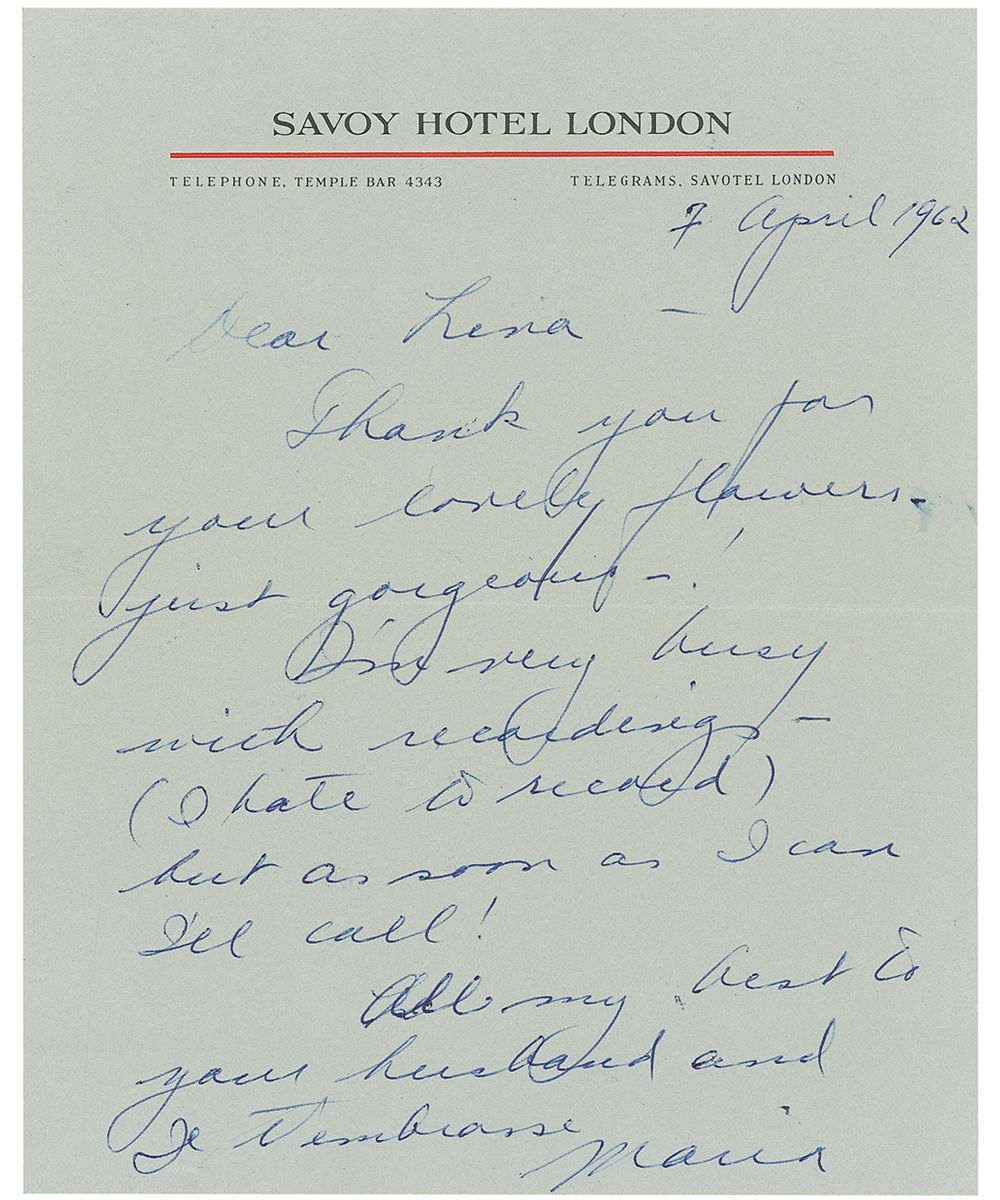 SAVOY HOTEL LONDON
TELEPHONE, TEMPLE BAR 4343 TELEGRAMS, SAVOTEL LONDON
7 April 1962
Dear Lina –
Thank you for
your lovely flowers –
just gorgeous – !
I'm very busy
with recordings –
(I hate to record)
but as soon as I can
I'll call!
All my best to
your husband and
Je t'embrasse
Maria